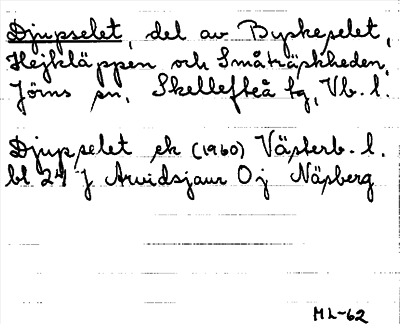 Djupselet, del av Byskeselet,
Hejkläppen och Småträskheden,
Jörns sn, Skellefteå tg, Vb. l.
Djupselet ek (1960) Västerb. l.
bl 24 J Arvidsjaur O j Näsberg
ML-62